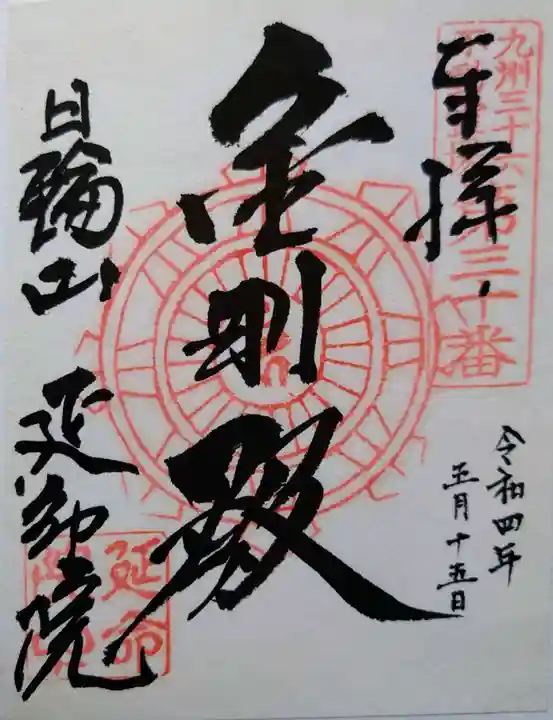 九州三十六不動霊場第三十番
奉拝
令和四年
五月十五日
金剛殿
日輪山
延命院
延命